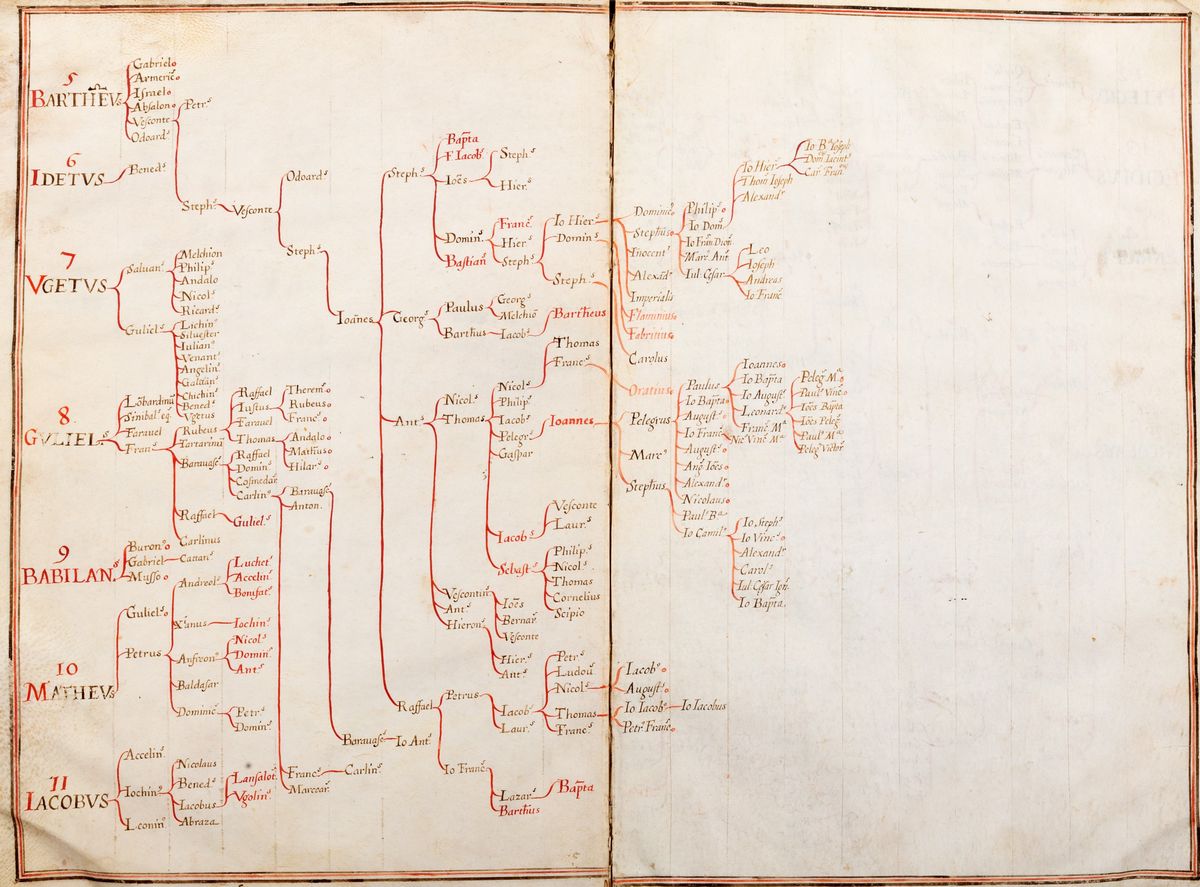 5
BARTHEVS
Gabriel
Armeric
Israel
Absalon
Vesconte
Odoard.
Petr.s
Steph.s
Vesconte
Odoard.s
Steph.s
Ioannes
Steph.s
Bapta
F. Iacob.
Ioes
Steph.s
Hier.s
Domin.
Bastian.
Franc.s
Hier.s
Steph.s
Io Hier.s
Domin.s
Steph.s
Dominic.
Stephus
Inocent.
Alexad.r
Imperialis
Flaminius
Fabritius
Carolus
Philip.s
Io Dom.
Marc. Ant.
Iul. Cesar
Io Hier.
Thom Ioseph
Alexand.r
Io B.a Ioseph
Dom. Iacint.
Car. Fran.
Leo
Ioseph
Andreas
Io Franc.
Georg.s
Paulus
Barthus
Georg.s
Melchio
Iacob.s
Bartheus
Ant.s
Nicol.s
Thomas
Nicol.s
Philip.s
Iacob.s
Pelegr.s
Gaspar
Iacob.s
Sebast.s
Thomas
Franc.s
Oratius
Ioannes
Pelegrus
Marc.s
Stephus
Paulus
Io Bapta
August.s
Io Franc.
August.s
Ang. Ioes
Alexand.r
Nicolaus
Paul. B.a
Io Camil.
Ioannes
Io Bapta
Io August.
Leonard.
Franc. M.a
Nic. Vinc. M.a
Peleg. M.a
Paul. Vinc.
Ioes Bapta
Ioes Peleg.
Paul. M.a
Peleg. Victor.
Io Steph.
Io Vinc.
Alexand.r
Carol.s
Iul. Cesar Ign.
Io Bapta.
Vesconte
Laur.s
Philip.s
Nicol.s
Thomas
Cornelius
Scipio
Vescontin.
Ant.s
Hieron.s
Ioes
Bernar.
Vesconte
Hier.s
Ant.s
Raffael
Petrus
Io Franc.
Iacob.s
Laur.s
Petr.s
Ludou.
Nicol.s
Thomas
Franc.s
Iacob.
August.
Io Iacob.
Petr. Franc.
Io Iacobus
Lazar.
Barthus
Bapta
6
IDETVS
Bened.s
7
VGETVS
Saluan.
Guliel.s
Melchion
Philip.
Andalo
Nicol.
Ricard.
Lichin.
Siluester
Iulian.
Venant.
Angelin.
Galdan.
Chichin.
Bened.s
Vgetus
8
GVLIEL.s
Lobardinus
Simbal. eq.
Farauel
Fran.s
Rubeus
Tartarinus
Barauasc.
Raffael
Carlinus
Raffael
Iustus
Farauel
Thomas
Therem.
Rubeus
Franc.
Andalo
Mathus
Hilar.
Raffael
Domin.
Cosmedar.
Carlin.
Barauasc.
Anton.
Franc.
Marcoar.
Guliel.s
Barauasc.
Io Ant.
Carlin.
9
BABILAN.s
Buron.
Gabriel
Musso
Cattan.
10
MATHEVS
Guliel.s
Petrus
Andreol.
Xanus
Anfreon.
Baldasar
Dominic.
Luchet.
Accelin.
Bonifat.
Iochin.
Nicol.
Domin.
Ant.s
Petr.s
Domin.
11
IACOBVS
Accelin.
Iochin.
Leonin.
Nicolaus
Bened.s
Iacobus
Abraza
Lansalot.
Vgolin.